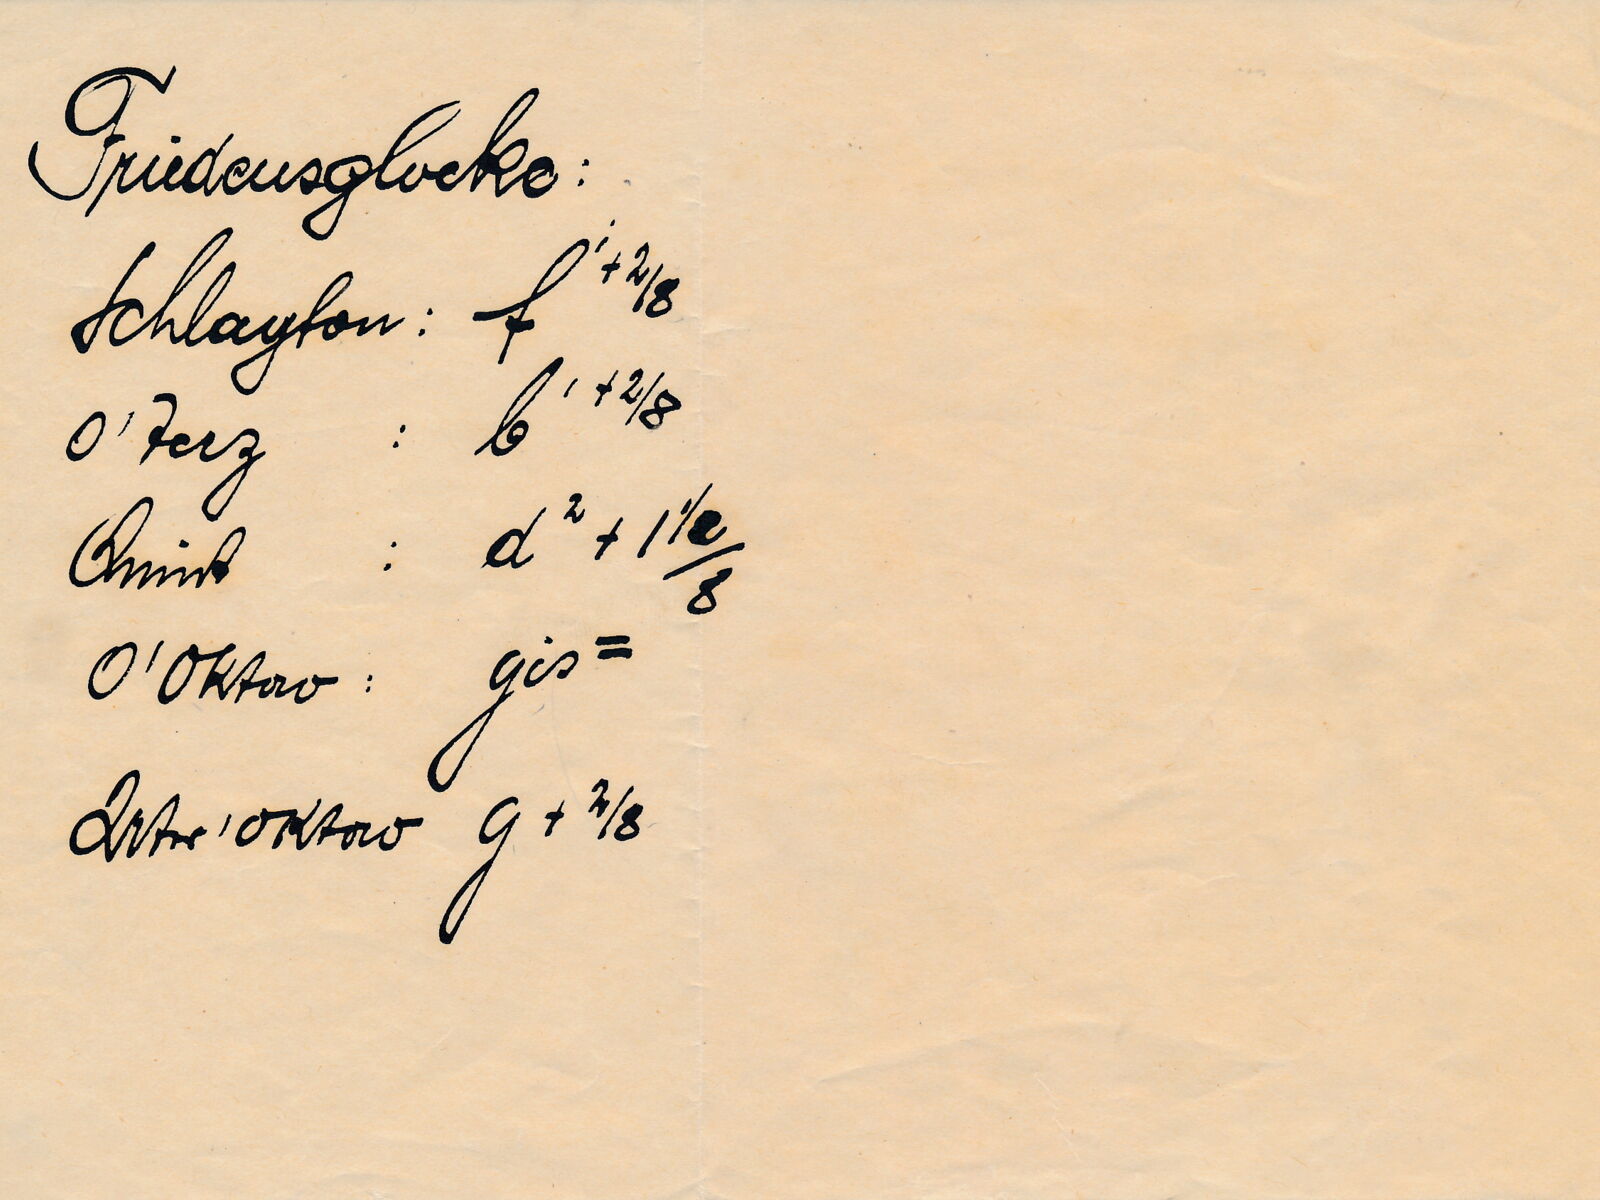 Friedensglocke:
Schlagton: f'+2/8
O'Terz : b'+2/8
Quint : d² + 1 1/2/8
O'Oktav: gis=
Utr'oktav g + 2/8